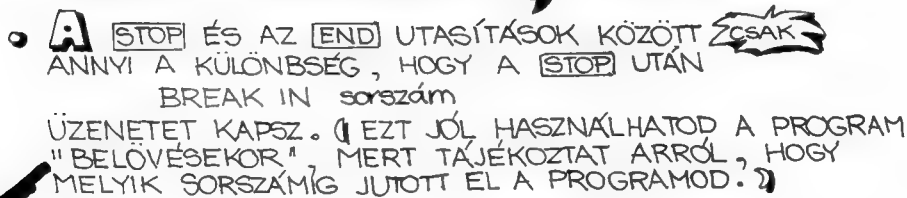 • A STOP ÉS AZ END UTASÍTÁSOK KÖZÖTT CSAK
ANNYI A KÜLÖNBSÉG, HOGY A STOP UTÁN
BREAK IN sorszám
ÜZENETET KAPSZ. (EZT JÓL HASZNÁLHATOD A PROGRAM
"BELÖVÉSEKOR", MERT TÁJÉKOZTAT ARRÓL, HOGY
MELYIK SORSZÁMIG JUTOTT EL A PROGRAMOD.)